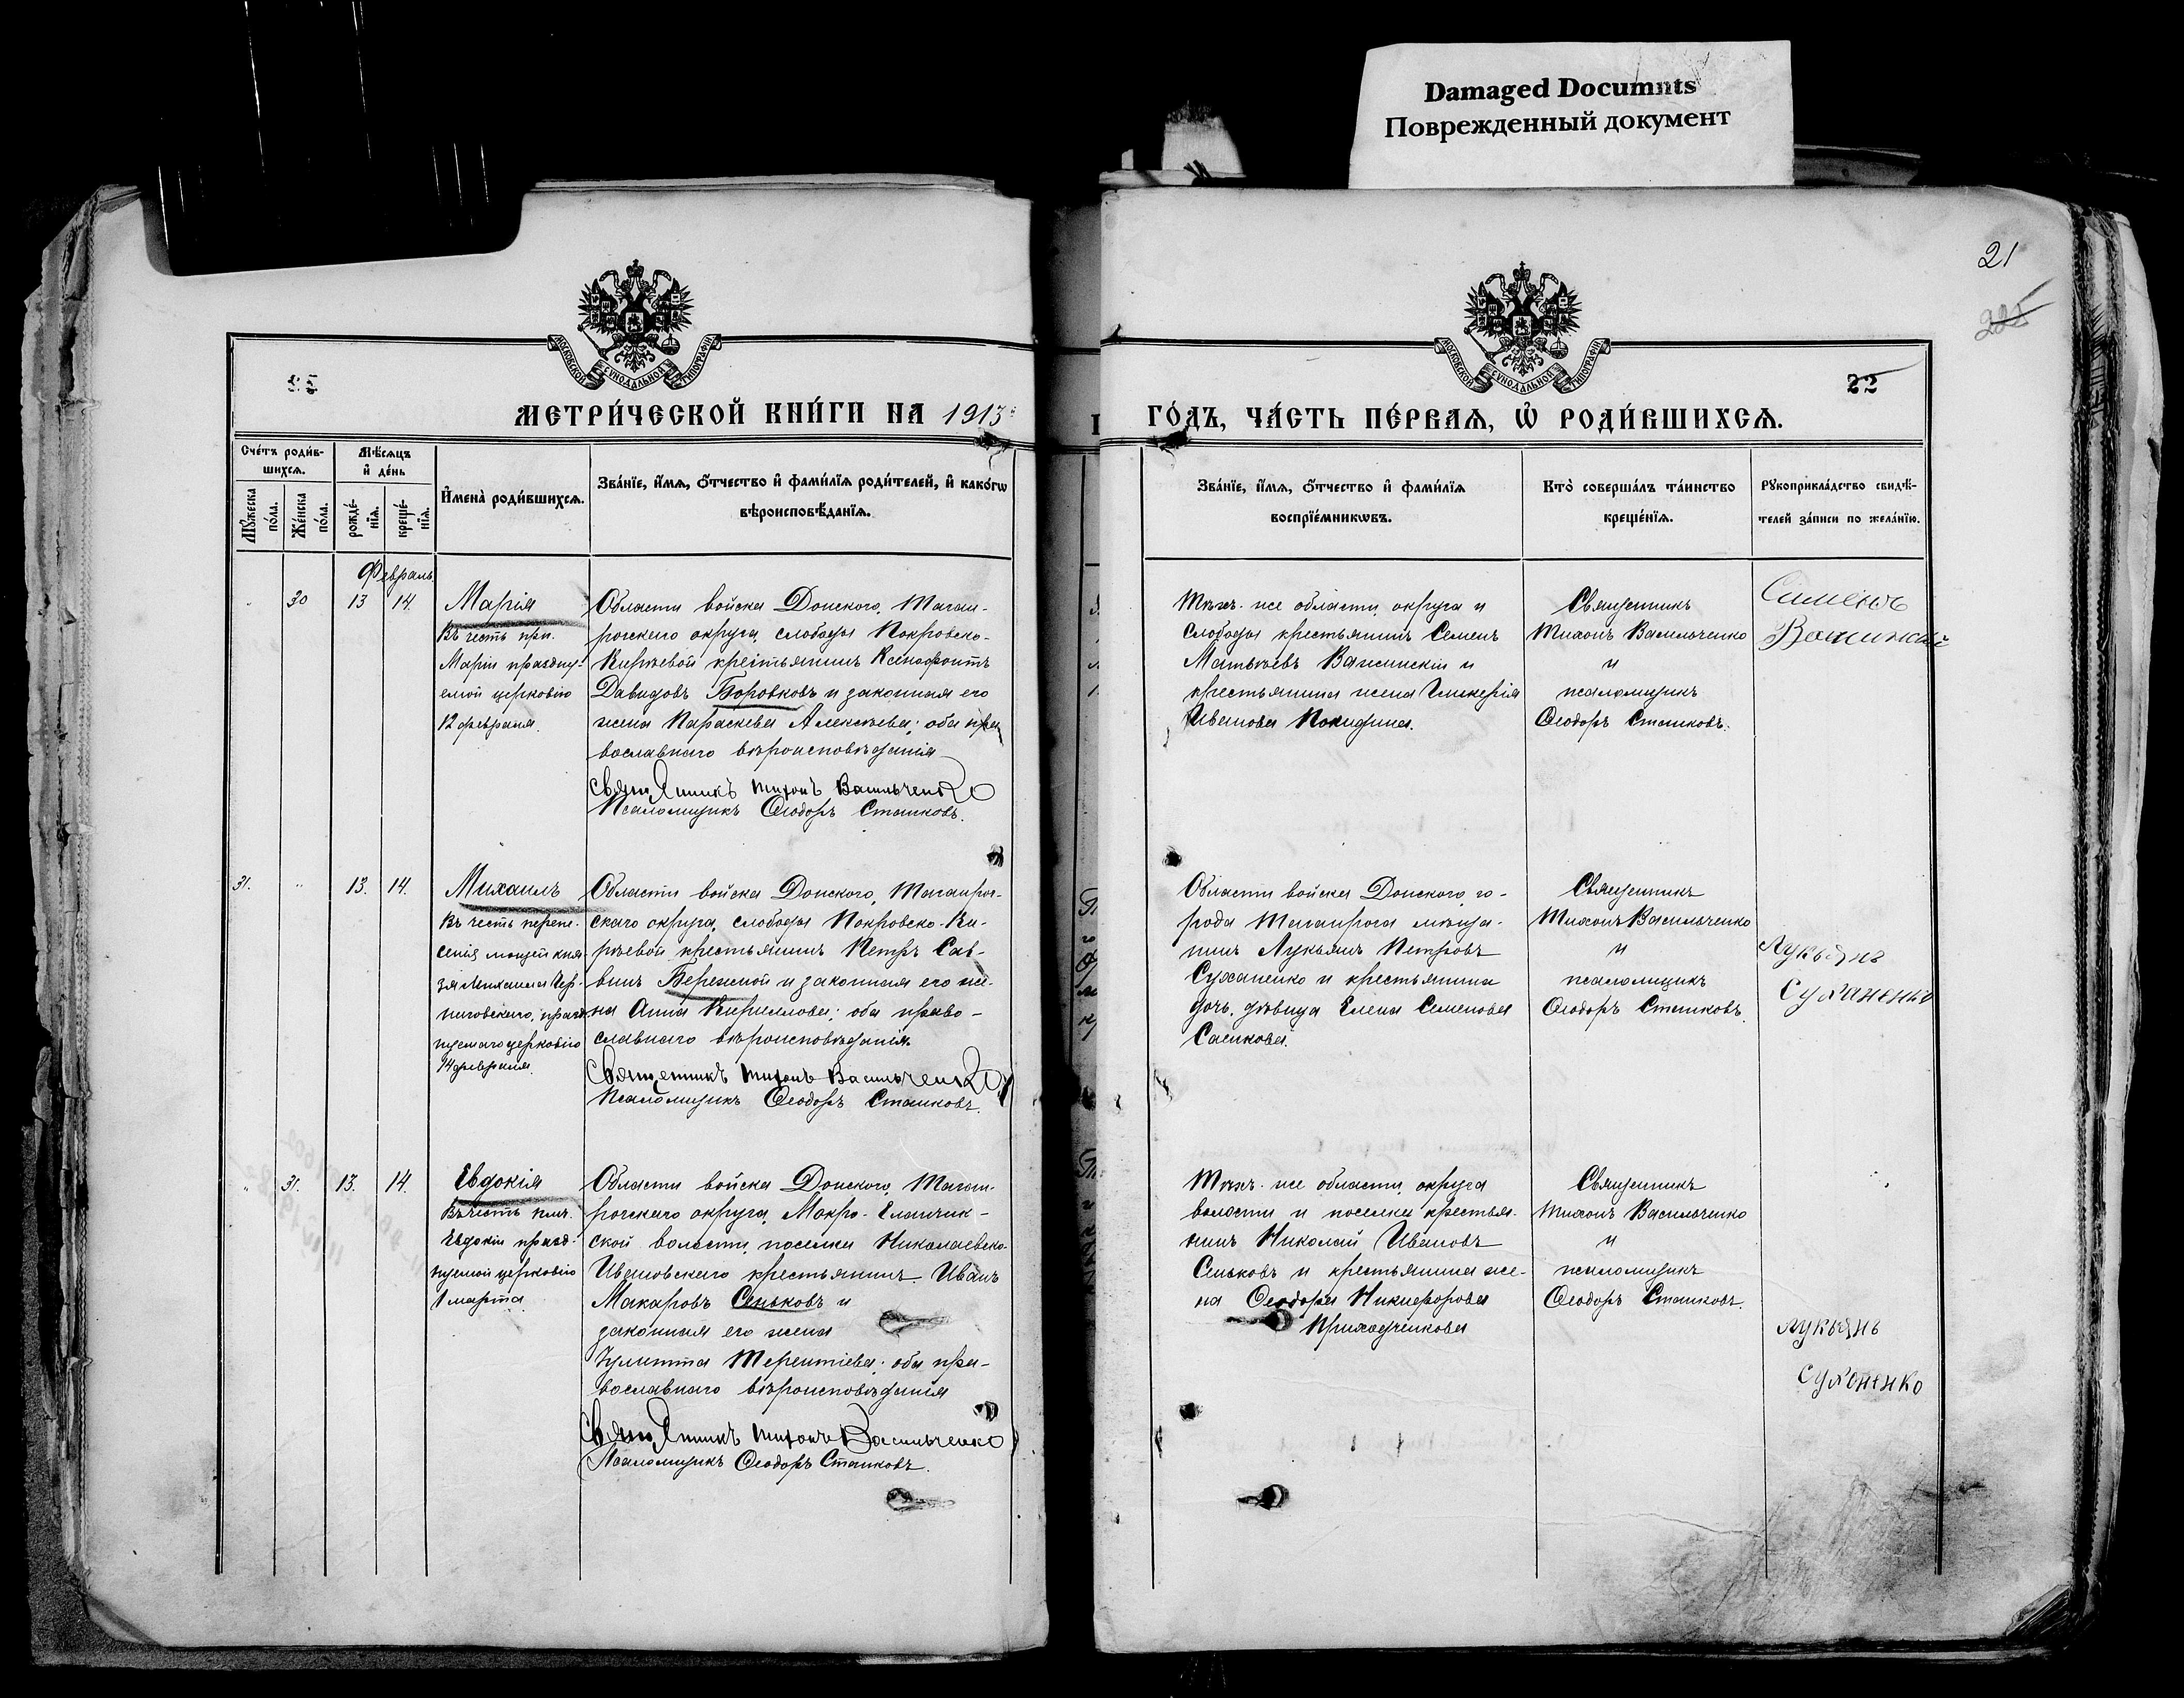 Damaged Documnts
Поврежденный документ
21
22
МОСКОВСКОЙ СУНОДАЛЬНОЙ ТИПОГРАФІИ
МОСКОВСКОЙ СУНОДАЛЬНОЙ ТИПОГРАФІИ
МЕТРИ́ЧЕСКОЙ КНИ́ГИ НА 1913
ГО́ДЪ, ЧА́СТЬ ПЕ́РВАѦ, Ѡ҆ РОДИ́ВШИХСѦ.
Сче́тъ роди́в-
шихсѧ.
Мѣ́сѧцъ
и҆ де́нь
Мꙋ́жеска
по́ла.
Же́нска
по́ла.
рожде́-
нїѧ.
креще́-
нїѧ.
И҆мена̀ роди́вшихсѧ.
Зва́нїе, и҆́мѧ, ѻ҆́тчество и҆ фами́лїѧ роди́телей, и҆ како́гѡ
вѣроисповѣ́данїѧ.
Зва́нїе, и҆́мѧ, ѻ҆́тчество и҆ фами́лїѧ
воспрїе́мникѡвъ.
Кто̀ соверша́лъ та́инство
креще́нїѧ.
Рꙋкоприкла́дство свидѣ́-
телей за́писи по жела́нїю.
Февраль
30 13 14.
Марія
Въ честь прп.
Маріи праздну-
емой церковію
12 февраля.
Области войска Донского, Таган-
рогскаго округа, слободы Покровско-
Киреевой крестьянинъ Ксенофонтъ
Давидовъ Боровковъ и законная его
жена Параскева Алексѣева; оба пра
вославнаго вѣроисповѣданія
Священникъ Тихонъ Васильченко
Псаломщикъ Ѳеодоръ Сташковъ.
Той-же области, округа и
слободы крестьянинъ Семенъ
Матвѣевъ Важинскій и
крестьянина жена Гликерія
Иванова Покидина.
Священникъ
Тихонъ Васильченко
и
псаломщикъ
Ѳеодоръ Сташковъ.
Семенъ
Важинскій
31. 13. 14.
Михаилъ
Въ честь перене-
сенія мощей кня-
зя Михаила Чер-
ниговскаго, празд-
нуемаго церковію
14 февраля.
Области войска Донского, Таганрог-
скаго округа, слободы Покровско-Ки-
реевой крестьянинъ Петръ Сав-
винъ Бережной и законная его же-
на Анна Кириллова; оба право-
славнаго вѣроисповѣданія
Священникъ Тихонъ Васильченко
Псаломщикъ Ѳеодоръ Сташковъ.
Области войска Донского, го-
рода Таганрога мѣща-
нинъ Лукьянъ Петровъ
Суханенко и крестьянина
дочь, дѣвица Елена Семенова
Сашкова.
Священникъ
Тихонъ Васильченко
и
псаломщикъ
Ѳеодоръ Сташковъ.
Лукьянъ
Суханенко
31. 13. 14.
Евдокія
Въ честь пмч.
Евдокіи празд-
нуемой церковію
1 марта.
Области войска Донского, Таган-
рогскаго округа, Мокро-Еланчик-
ской волости, поселка Николаевско-
Ивановскаго крестьянинъ Иванъ
Макаровъ Сеньковъ и
законная его жена
Іулитта Терентіева; оба пра-
вославнаго вѣроисповѣданія
Священникъ Тихонъ Васильченко
Псаломщикъ Ѳеодоръ Сташковъ.
Той-же области, округа
волости и поселка крестья-
нинъ Николай Ивановъ
Сеньковъ и крестьянина же-
на Ѳеодора Никифорова
Приходченкова
Священникъ
Тихонъ Васильченко
и
псаломщикъ
Ѳеодоръ Сташковъ.
Лукьянъ
Суханенко